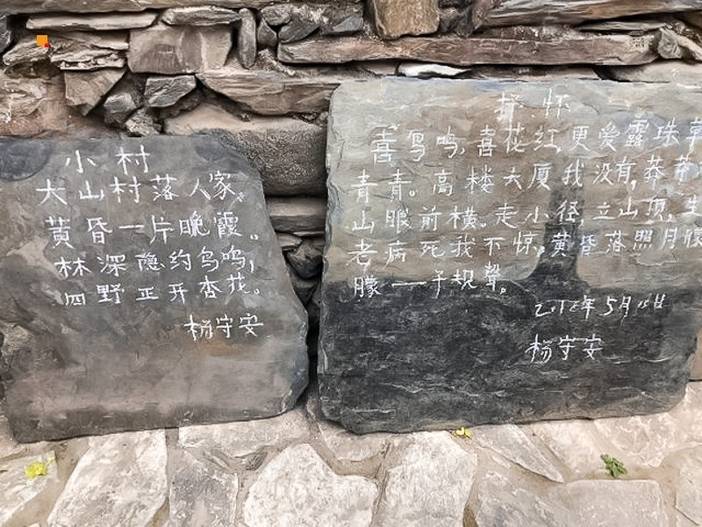 小村
大山村落人家。
黄昏一片晚霞。
林深隐约鸟鸣,
四野正开杏花。
杨守安
抒怀
喜鸟鸣,喜花红,更爱露珠草
青青。高楼大厦我没有,莽莽
山脉眼前横。走小径立山顶,生
老病死我不惊。黄昏落照月朦
朦一一子规聲。
年5月
杨守安